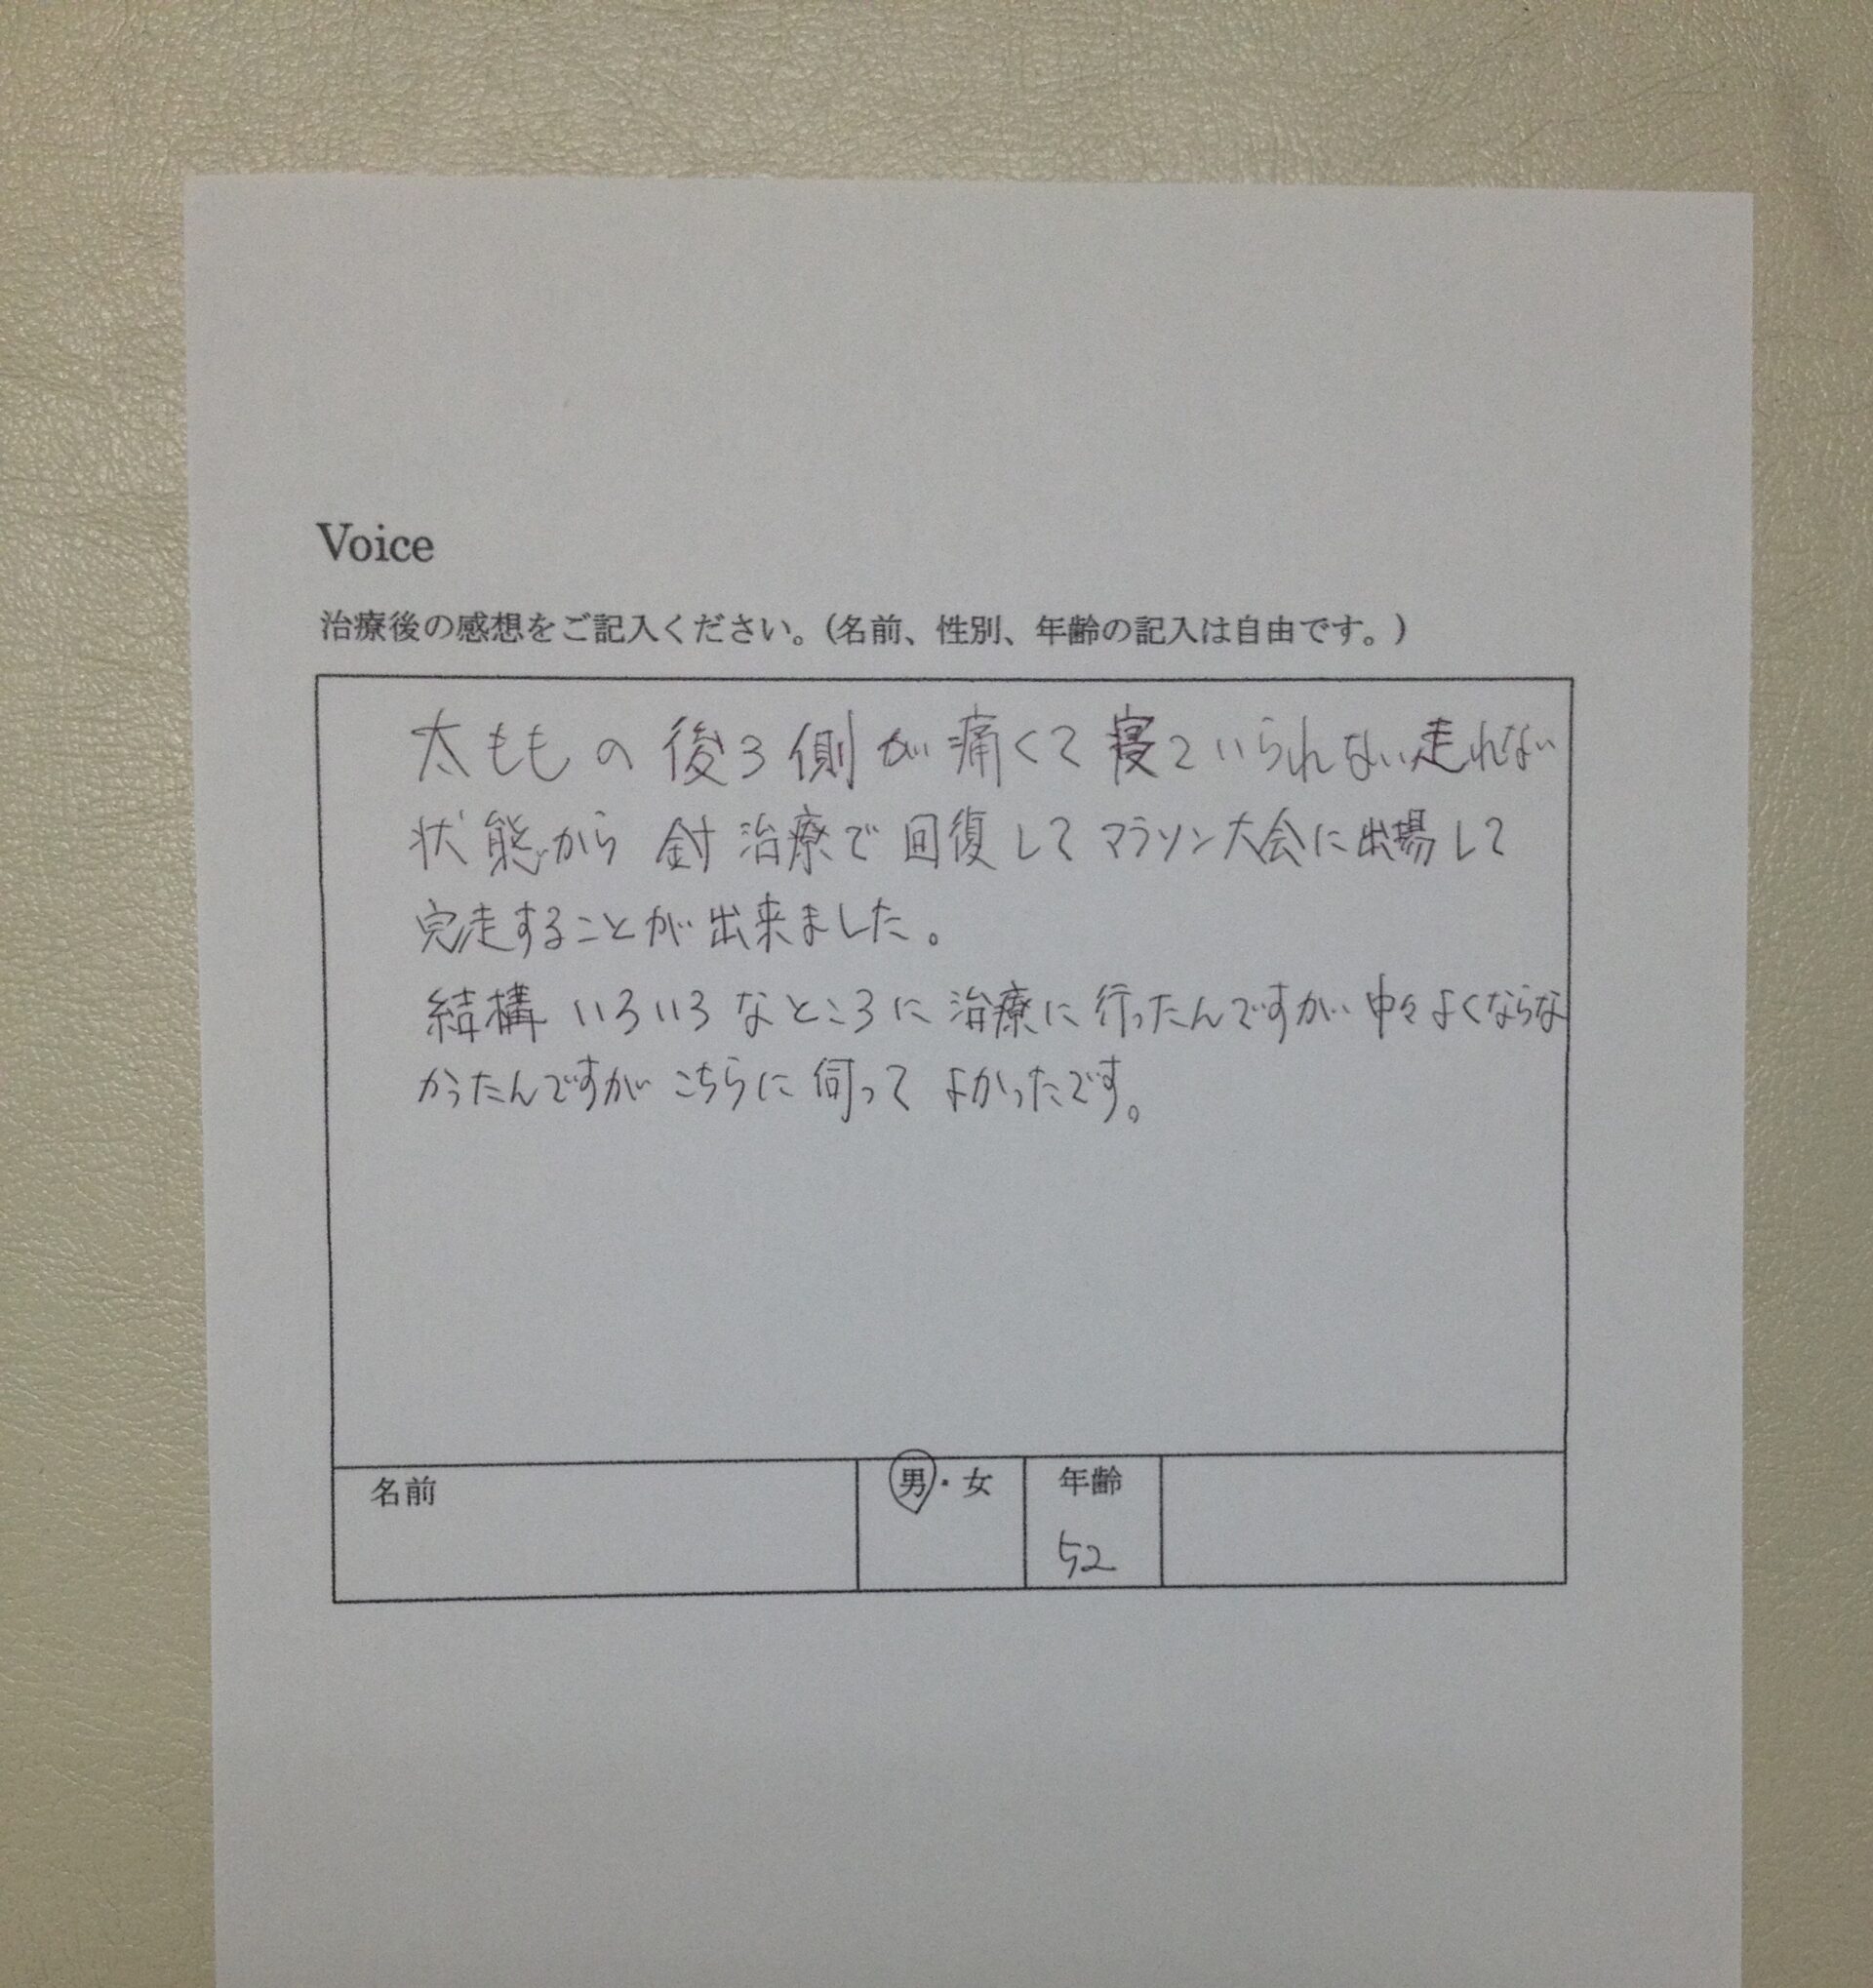 Voice
治療後の感想をご記入ください。（名前、性別、年齢の記入は自由です。）
太ももの後ろ側が痛くて寝ていられない走れない
状態から針治療で回復してマラソン大会に出場して
完走することが出来ました。
結構いろいろなところに治療に行ったんですが中々よくならな
かったんですがこちらに伺ってよかったです。
名前 男・女 年齢
52